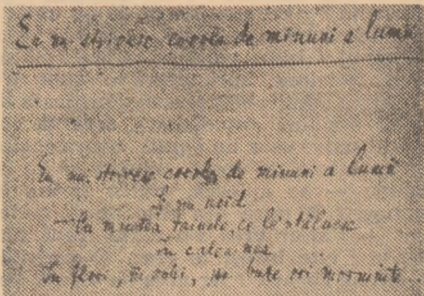 Eu nu strivesc corola de minuni a lumii
Eu nu strivesc corola de minuni a lumii
și nu ucid
cu mintea tainele, ce le-ntâlnesc
în calea mea
în flori, în ochi, pe buze ori morminte.